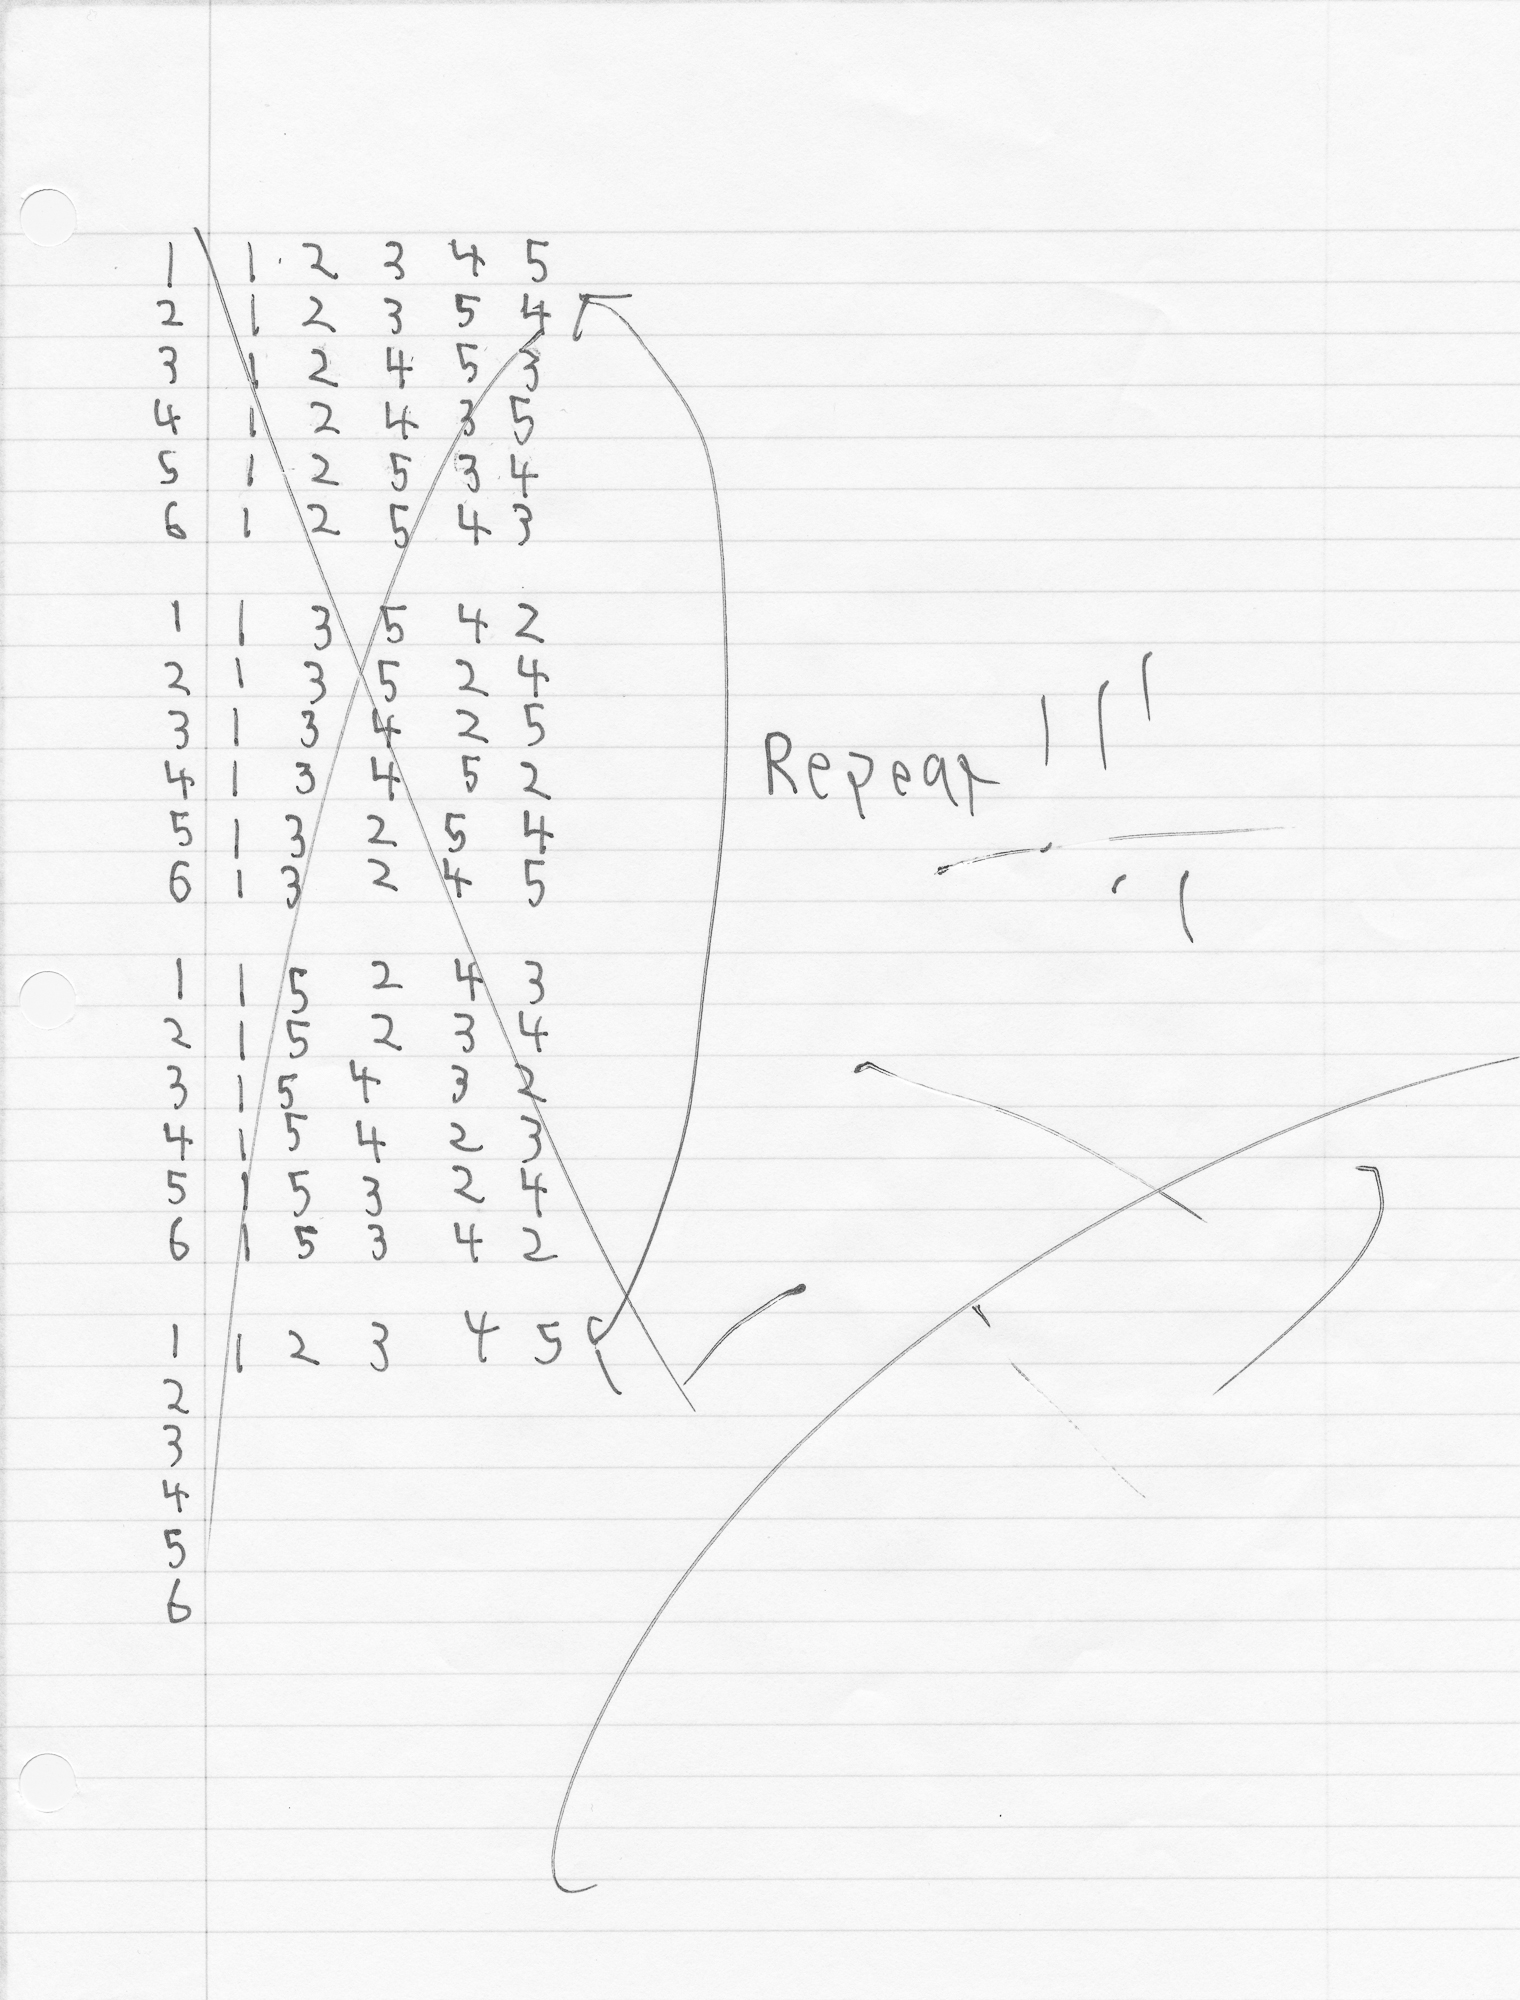 1 1 2 3 4 5
2 1 2 3 5 4
3 1 2 4 5 3
4 1 2 4 3 5
5 1 2 5 3 4
6 1 2 5 4 3
1 1 3 5 4 2
2 1 3 5 2 4
3 1 3 4 2 5
4 1 3 4 5 2
5 1 3 2 5 4
6 1 3 2 4 5
Repeat
1 1 5 2 4 3
2 1 5 2 3 4
3 1 5 4 3 2
4 1 5 4 2 3
5 1 5 3 2 4
6 1 5 3 4 2
1 1 2 3 4 5
2
3
4
5
6